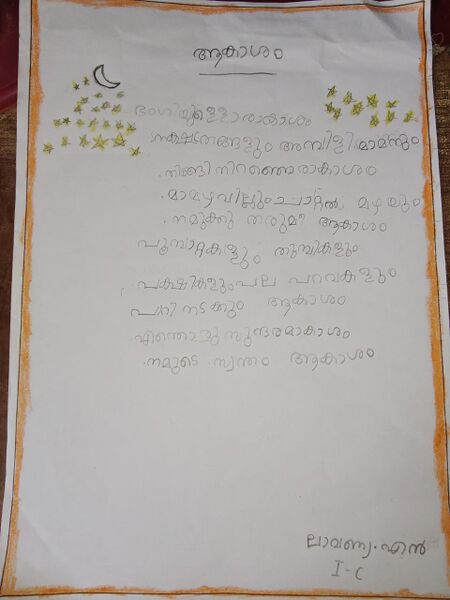 ആകാശം
ഭംഗിയുള്ളൊരാകാശം
നക്ഷത്രങ്ങളും അമ്പിളി മാമനും
തിങ്ങി നിറഞ്ഞൊരാകാശം
മാമഴവില്ലും ചാറ്റൽ മഴയും
നമുക്കു തരുമീ ആകാശം
പൂമ്പാറ്റകളും തുമ്പികളും
പക്ഷികളും പല പറവകളും
പാറി നടക്കും ആകാശം
എന്തൊരു സുന്ദരമാകാശം
നമ്മുടെ സ്വന്തം ആകാശം
ലാവണ്യ. എൻ
I-C